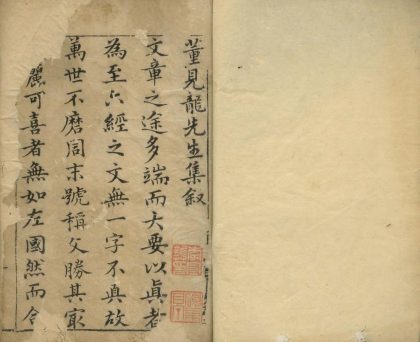 董見龍先生集叙
文章之途多端而大要以眞者
為至六經之文無一字不眞故
萬世不磨周末號稱文勝其寂
麗可喜者無如左國然而令